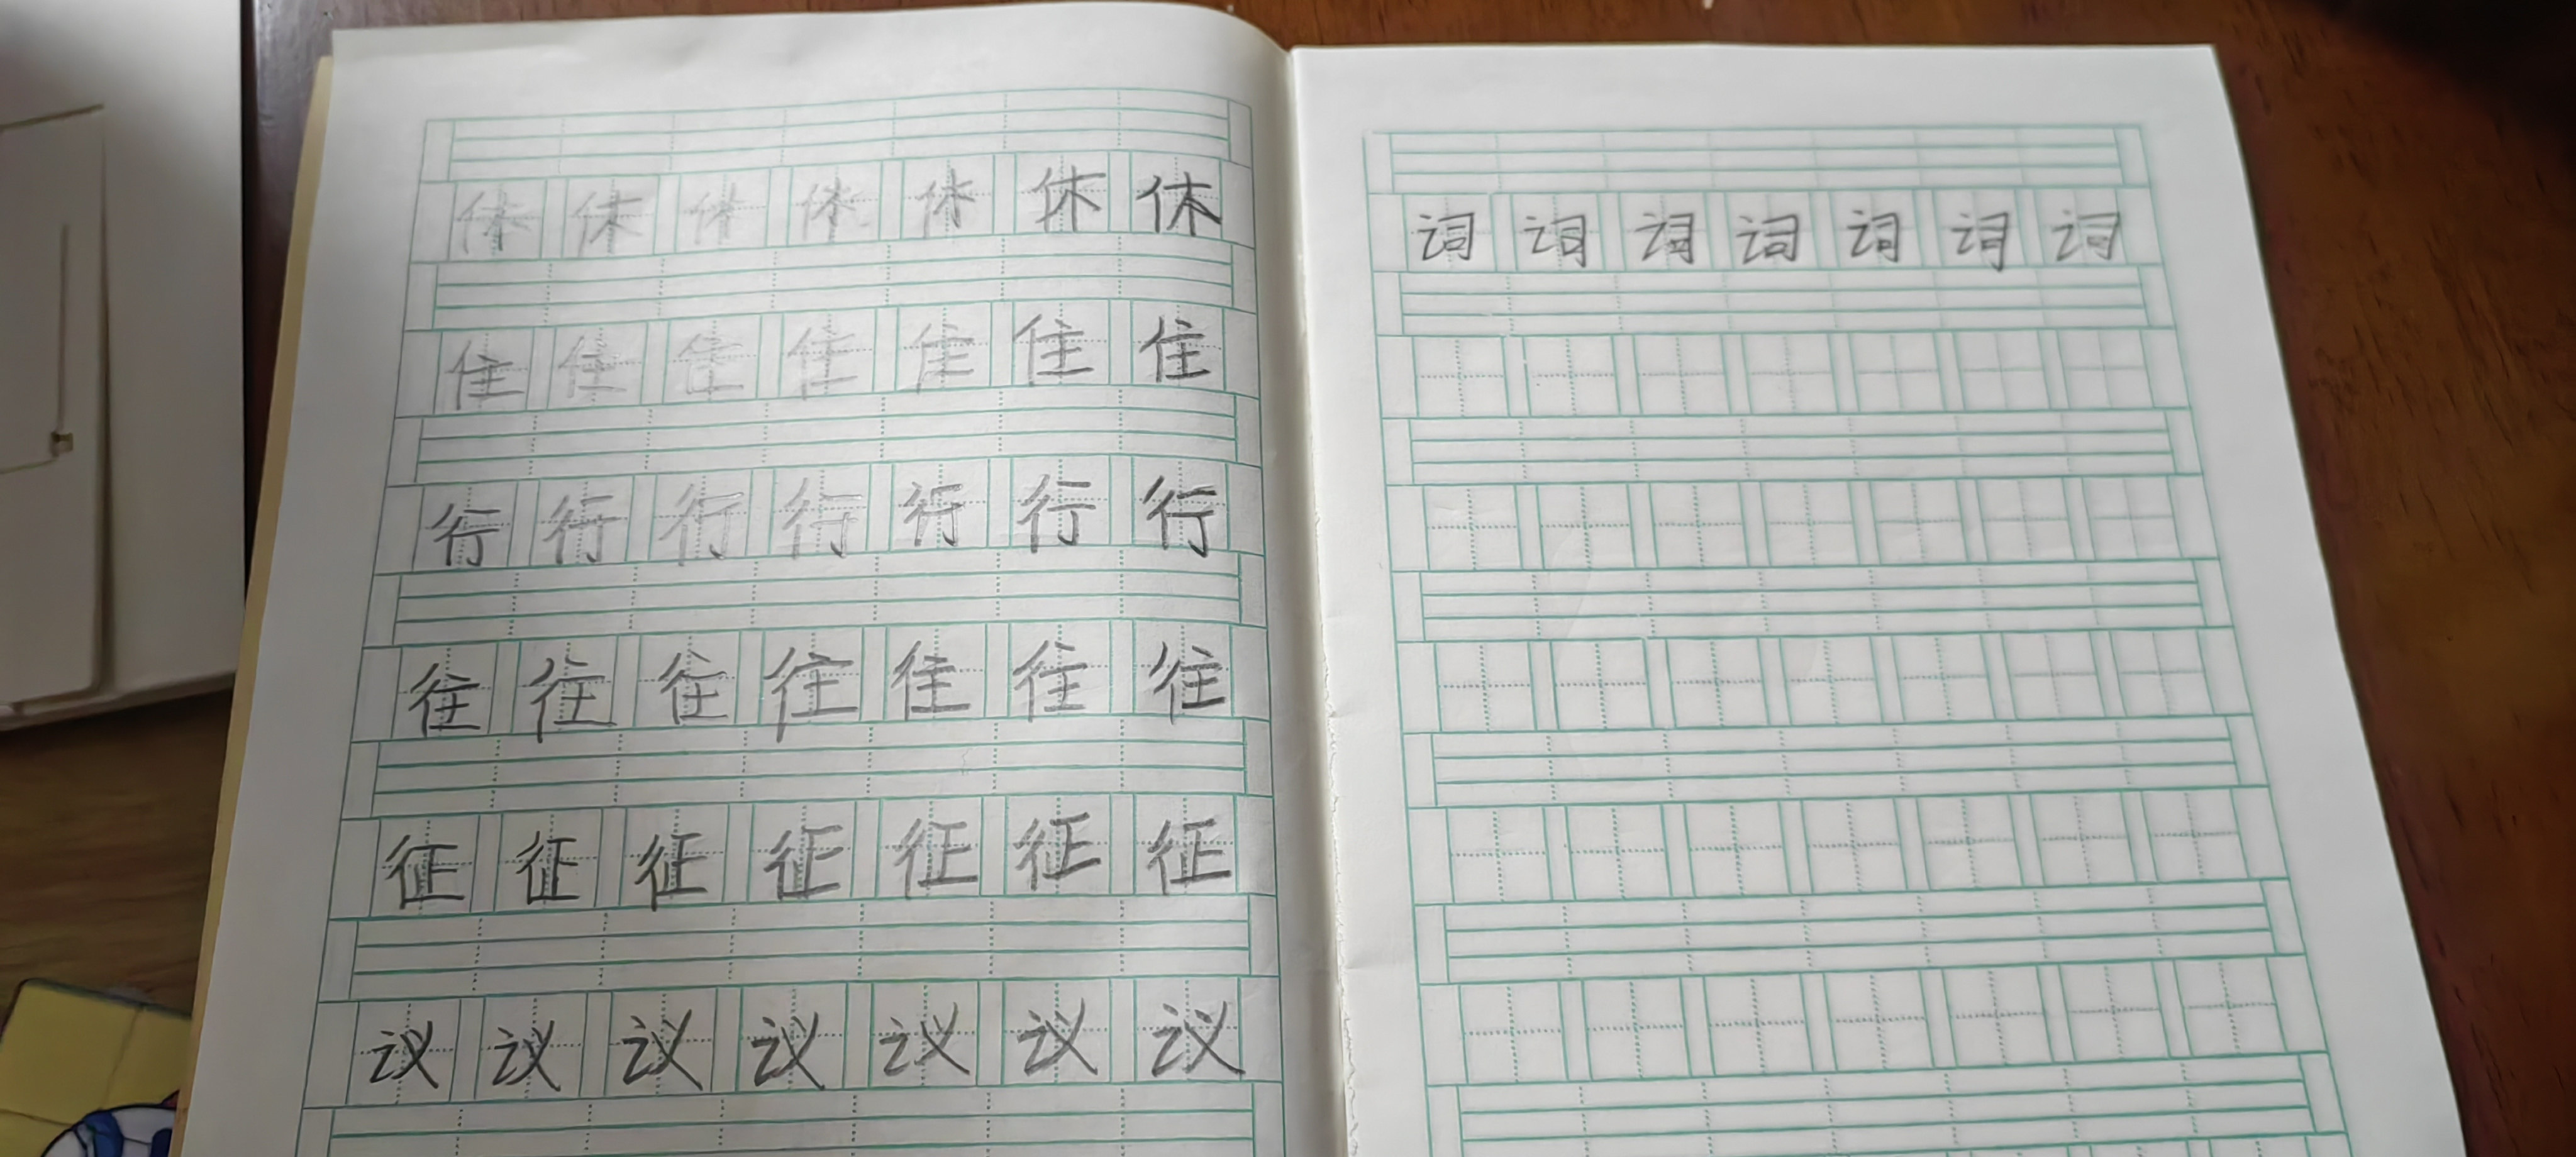 休休休休休休休
住住住住住住住
行行行行行行行
往往往往往往往
征征征征征征征
议议议议议议议
词词词词词词词